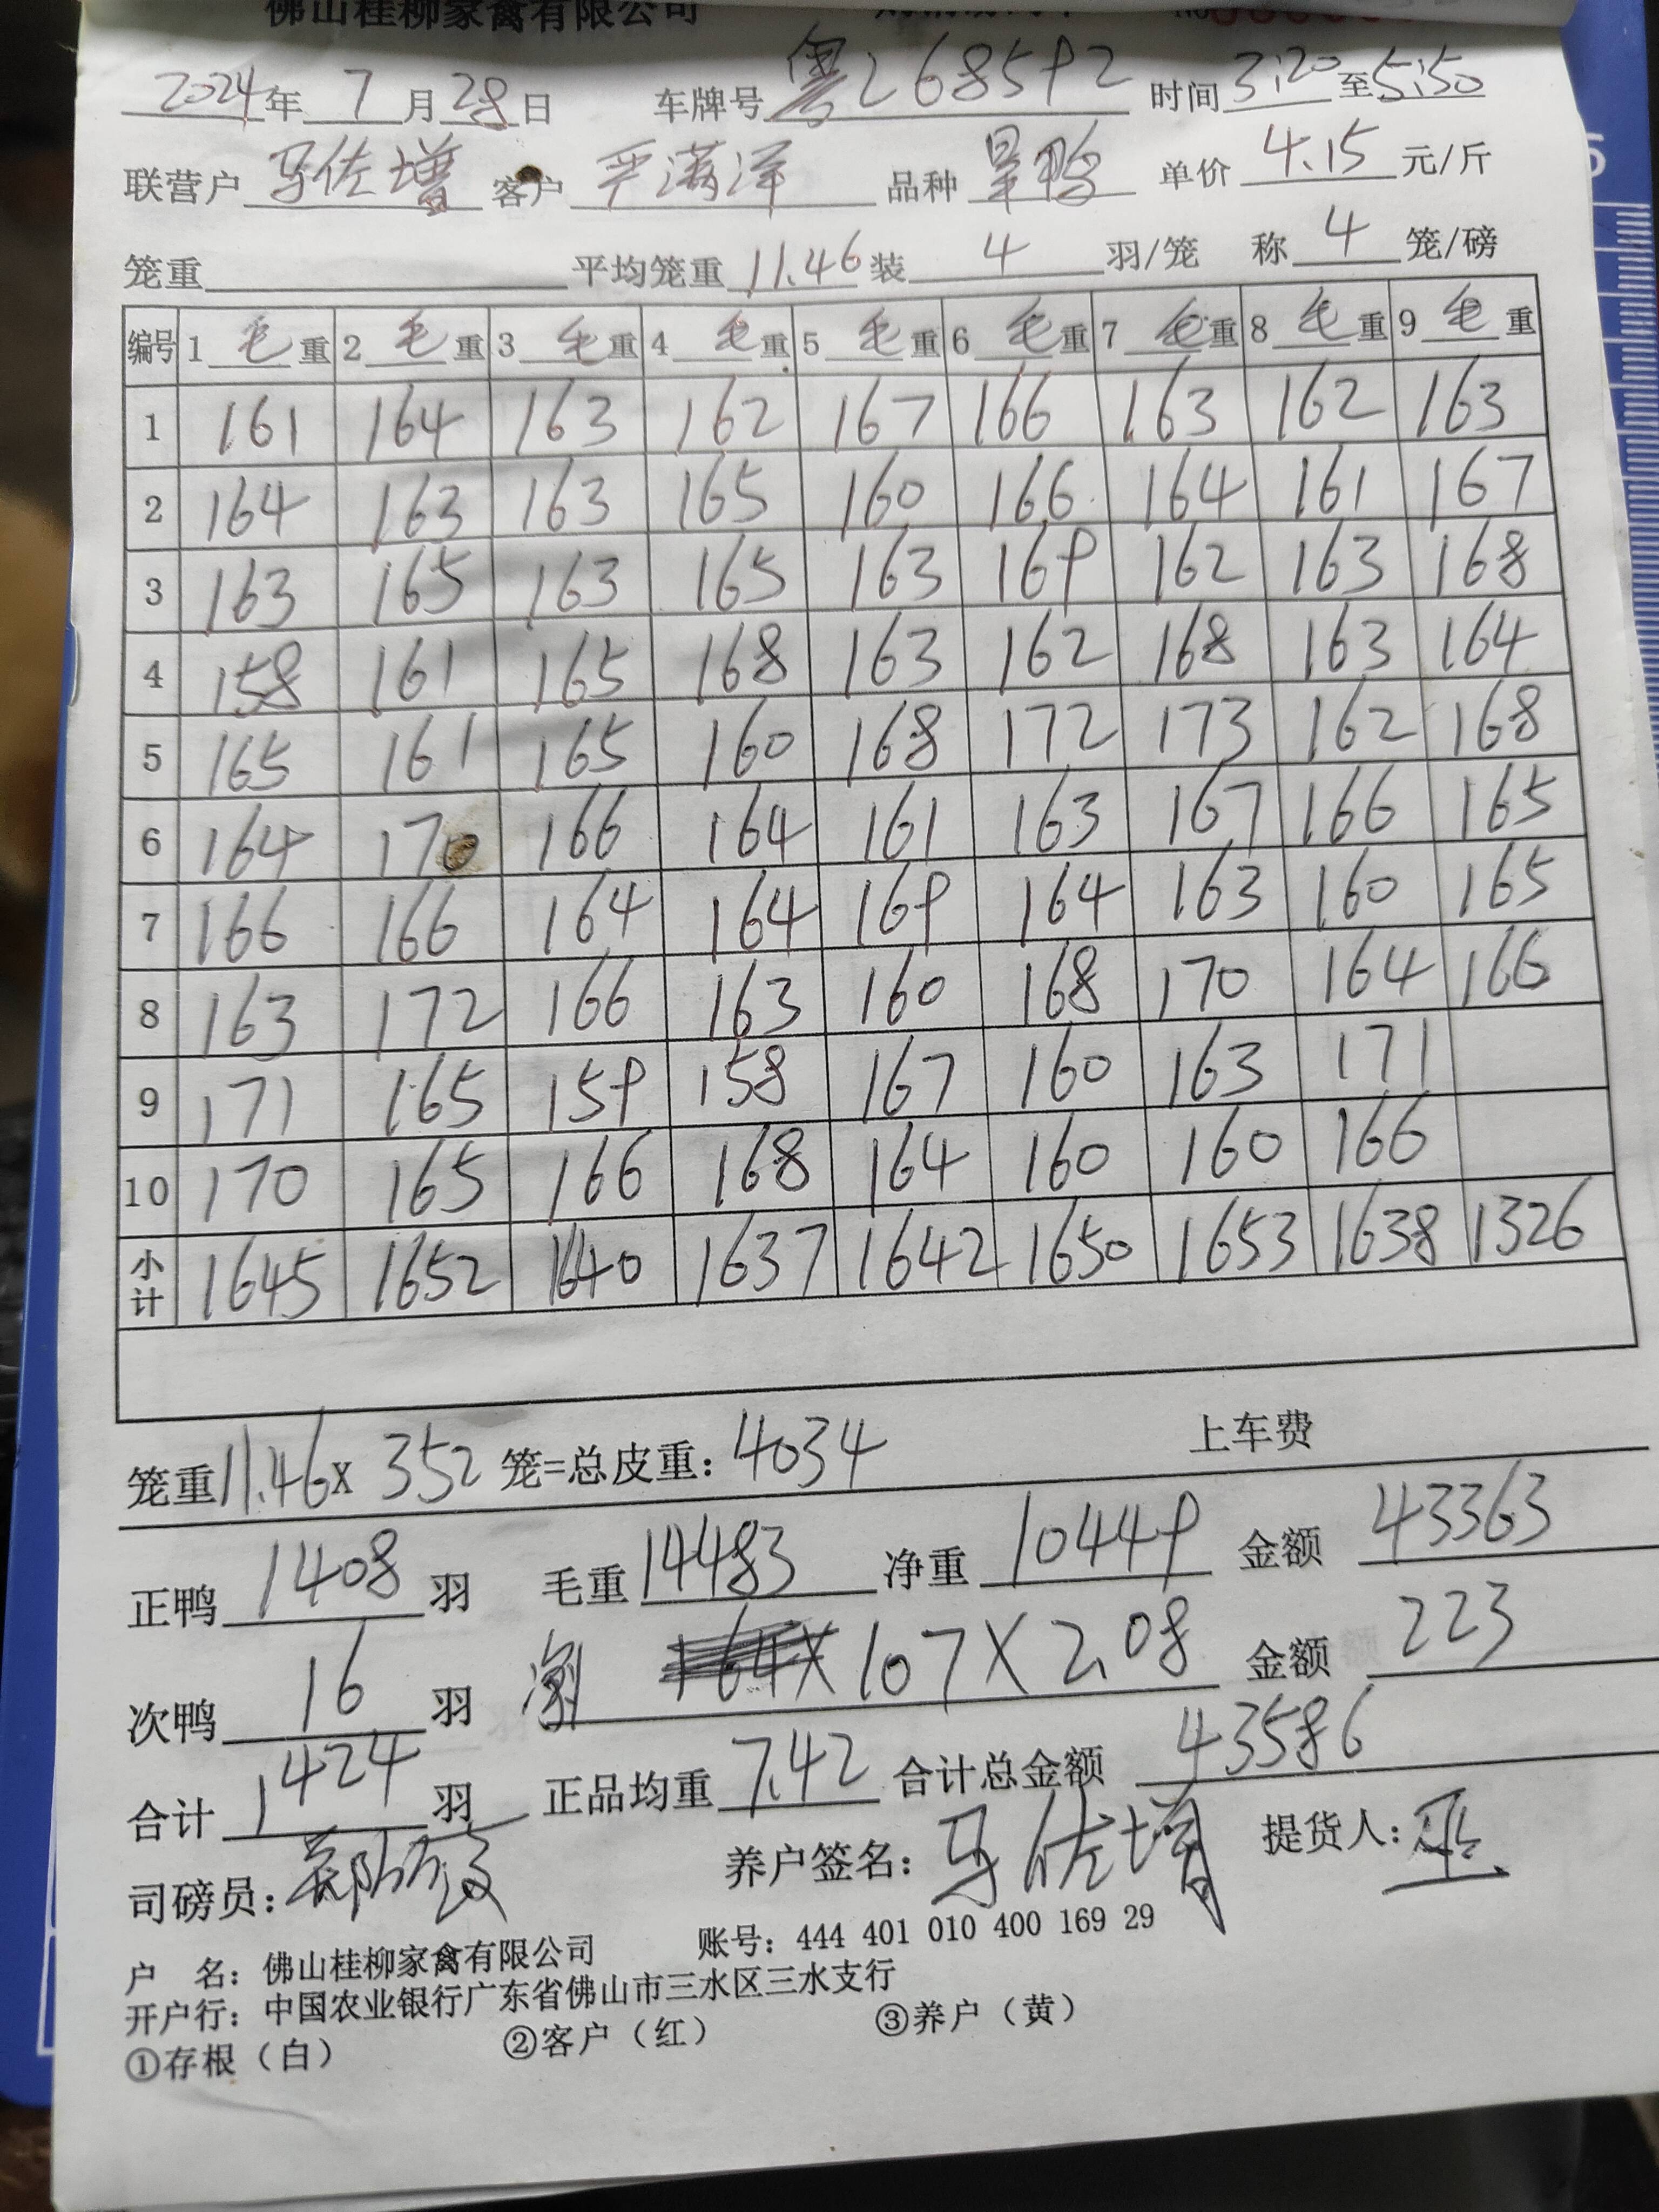 佛山桂柳家禽有限公司
2024年 7 月 28 日 车牌号 粤268592 时间 3:20 至 5:50
联营户 马佐增 客户 严满洋 品种 旱鸭 单价 4.15 元/斤
笼重 平均笼重 11.46 装 4 羽/笼 称 4 笼/磅
编号 1 毛 重 2 毛 重 3 毛 重 4 毛 重 5 毛 重 6 毛 重 7 毛 重 8 毛 重 9 毛 重
1 161 164 163 162 167 166 163 162 163
2 164 163 163 165 160 166 164 161 167
3 163 165 163 165 163 169 162 163 168
4 158 161 165 168 163 162 168 163 164
5 165 161 165 160 168 172 173 162 168
6 164 170 166 164 161 163 167 166 165
7 166 166 164 164 169 164 163 160 165
8 163 172 166 163 160 168 170 164 166
9 171 165 159 158 167 160 163 171
10 170 165 166 168 164 160 160 166
小计 1645 1652 1640 1637 1642 1650 1653 1638 1326
笼重 11.46 X 352 笼=总皮重: 4034 上车费
正鸭 1408 羽 毛重 14483 净重 10449 金额 43363
次鸭 16 羽 107 X 2.08 金额 223
合计 1424 羽 正品均重 7.42 合计总金额 43586
司磅员: 养户签名: 马佐增 提货人:
户 名: 佛山桂柳家禽有限公司 账号: 444 401 010 400 169 29
开户行: 中国农业银行广东省佛山市三水区三水支行
①存根（白） ②客户（红） ③养户（黄）